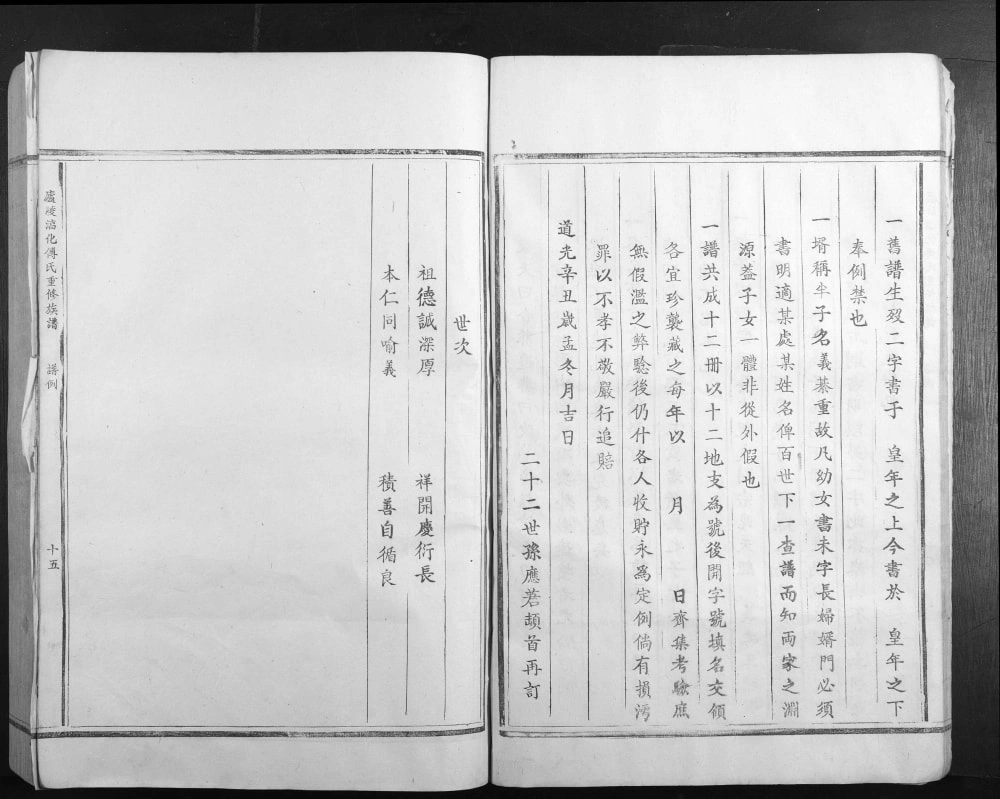 一舊譜生歿二字書于　皇年之上今書於　皇年之下
奉例禁也
一壻稱半子名義綦重故凡幼女書未字長婦婿門必須
書明適某處某姓名俾百世下一查譜而知両家之淵
源葢子女一體非從外假也
一譜共成十二冊以十二地支為號後開字號填名交領
各宜珍襲藏之每年以　月　　日齊集考驗庶
無假濫之弊騐後仍什各人收貯永為定例倘有損污
罪以不孝不敬嚴行追賠
道光辛丑歲孟冬月吉日
二十二世孫應莙頡首再訂
世次
祖德誠深厚　祥開慶衍長
本仁同喻義　積善自循良
廬陵滀化傅氏重修族譜　譜例　十五